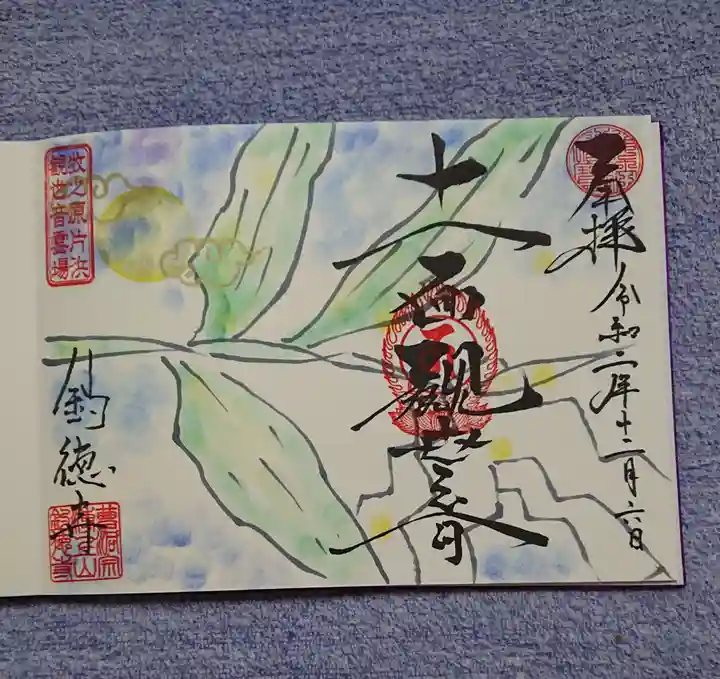 奉拝 令和二年十二月六日
十一面観世音
牧之原片浜
観世音霊場
釣徳寺